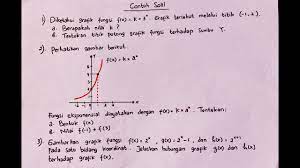 Contoh Soal
1). Diketahui grafik fungsi f(x) = k × 2ˣ. Grafik tersebut melalui titik (-1, 2).
a. Berapakah nilai k ?
b. Tentukan titik potong grafik fungsi terhadap Sumbu Y.
2). Perhatikan gambar berikut.
f(x) = k × aˣ
Fungsi eksponensial dinyatakan dengan f(x) = k × aˣ. Tentukan:
a. Bentuk f(x)
b. Nilai f(-1) + f(3)
3). Gambarkan grafik fungsi f(x) = 2ˣ, g(x) = 2ˣ - 1, dan h(x) = 2ˣ⁺¹
Pada satu bidang koordinat. Jelaskan hubungan grafik g(x) dan h(x)
terhadap grafik f(x).